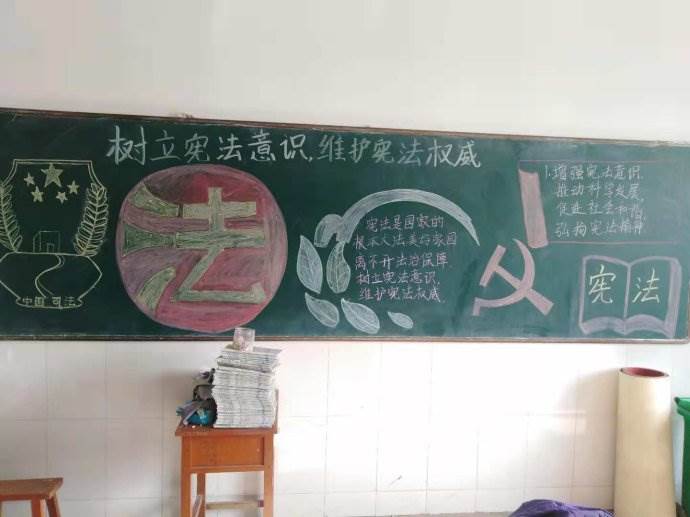 树立宪法意识,维护宪法权威
中国 司法
法
宪法是国家的
根本大法美好家园
离不开法治保障
树立宪法意识
维护宪法权威
1.增强宪法意识
推动科学发展
促进社会和谐
弘扬宪法精神
宪法